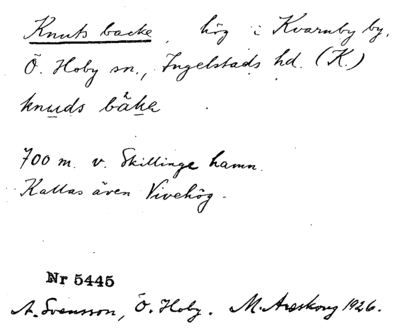 Knuts backe, hög i Kvarnby by,
Ö. Hoby sn., Ingelstads hd. (K.)
knuds båke
700 m. v. Skillinge hamn.
Kallas även Vivehög.
Nr 5445
A. Svensson, Ö. Hoby. M. Areskoug 1926.